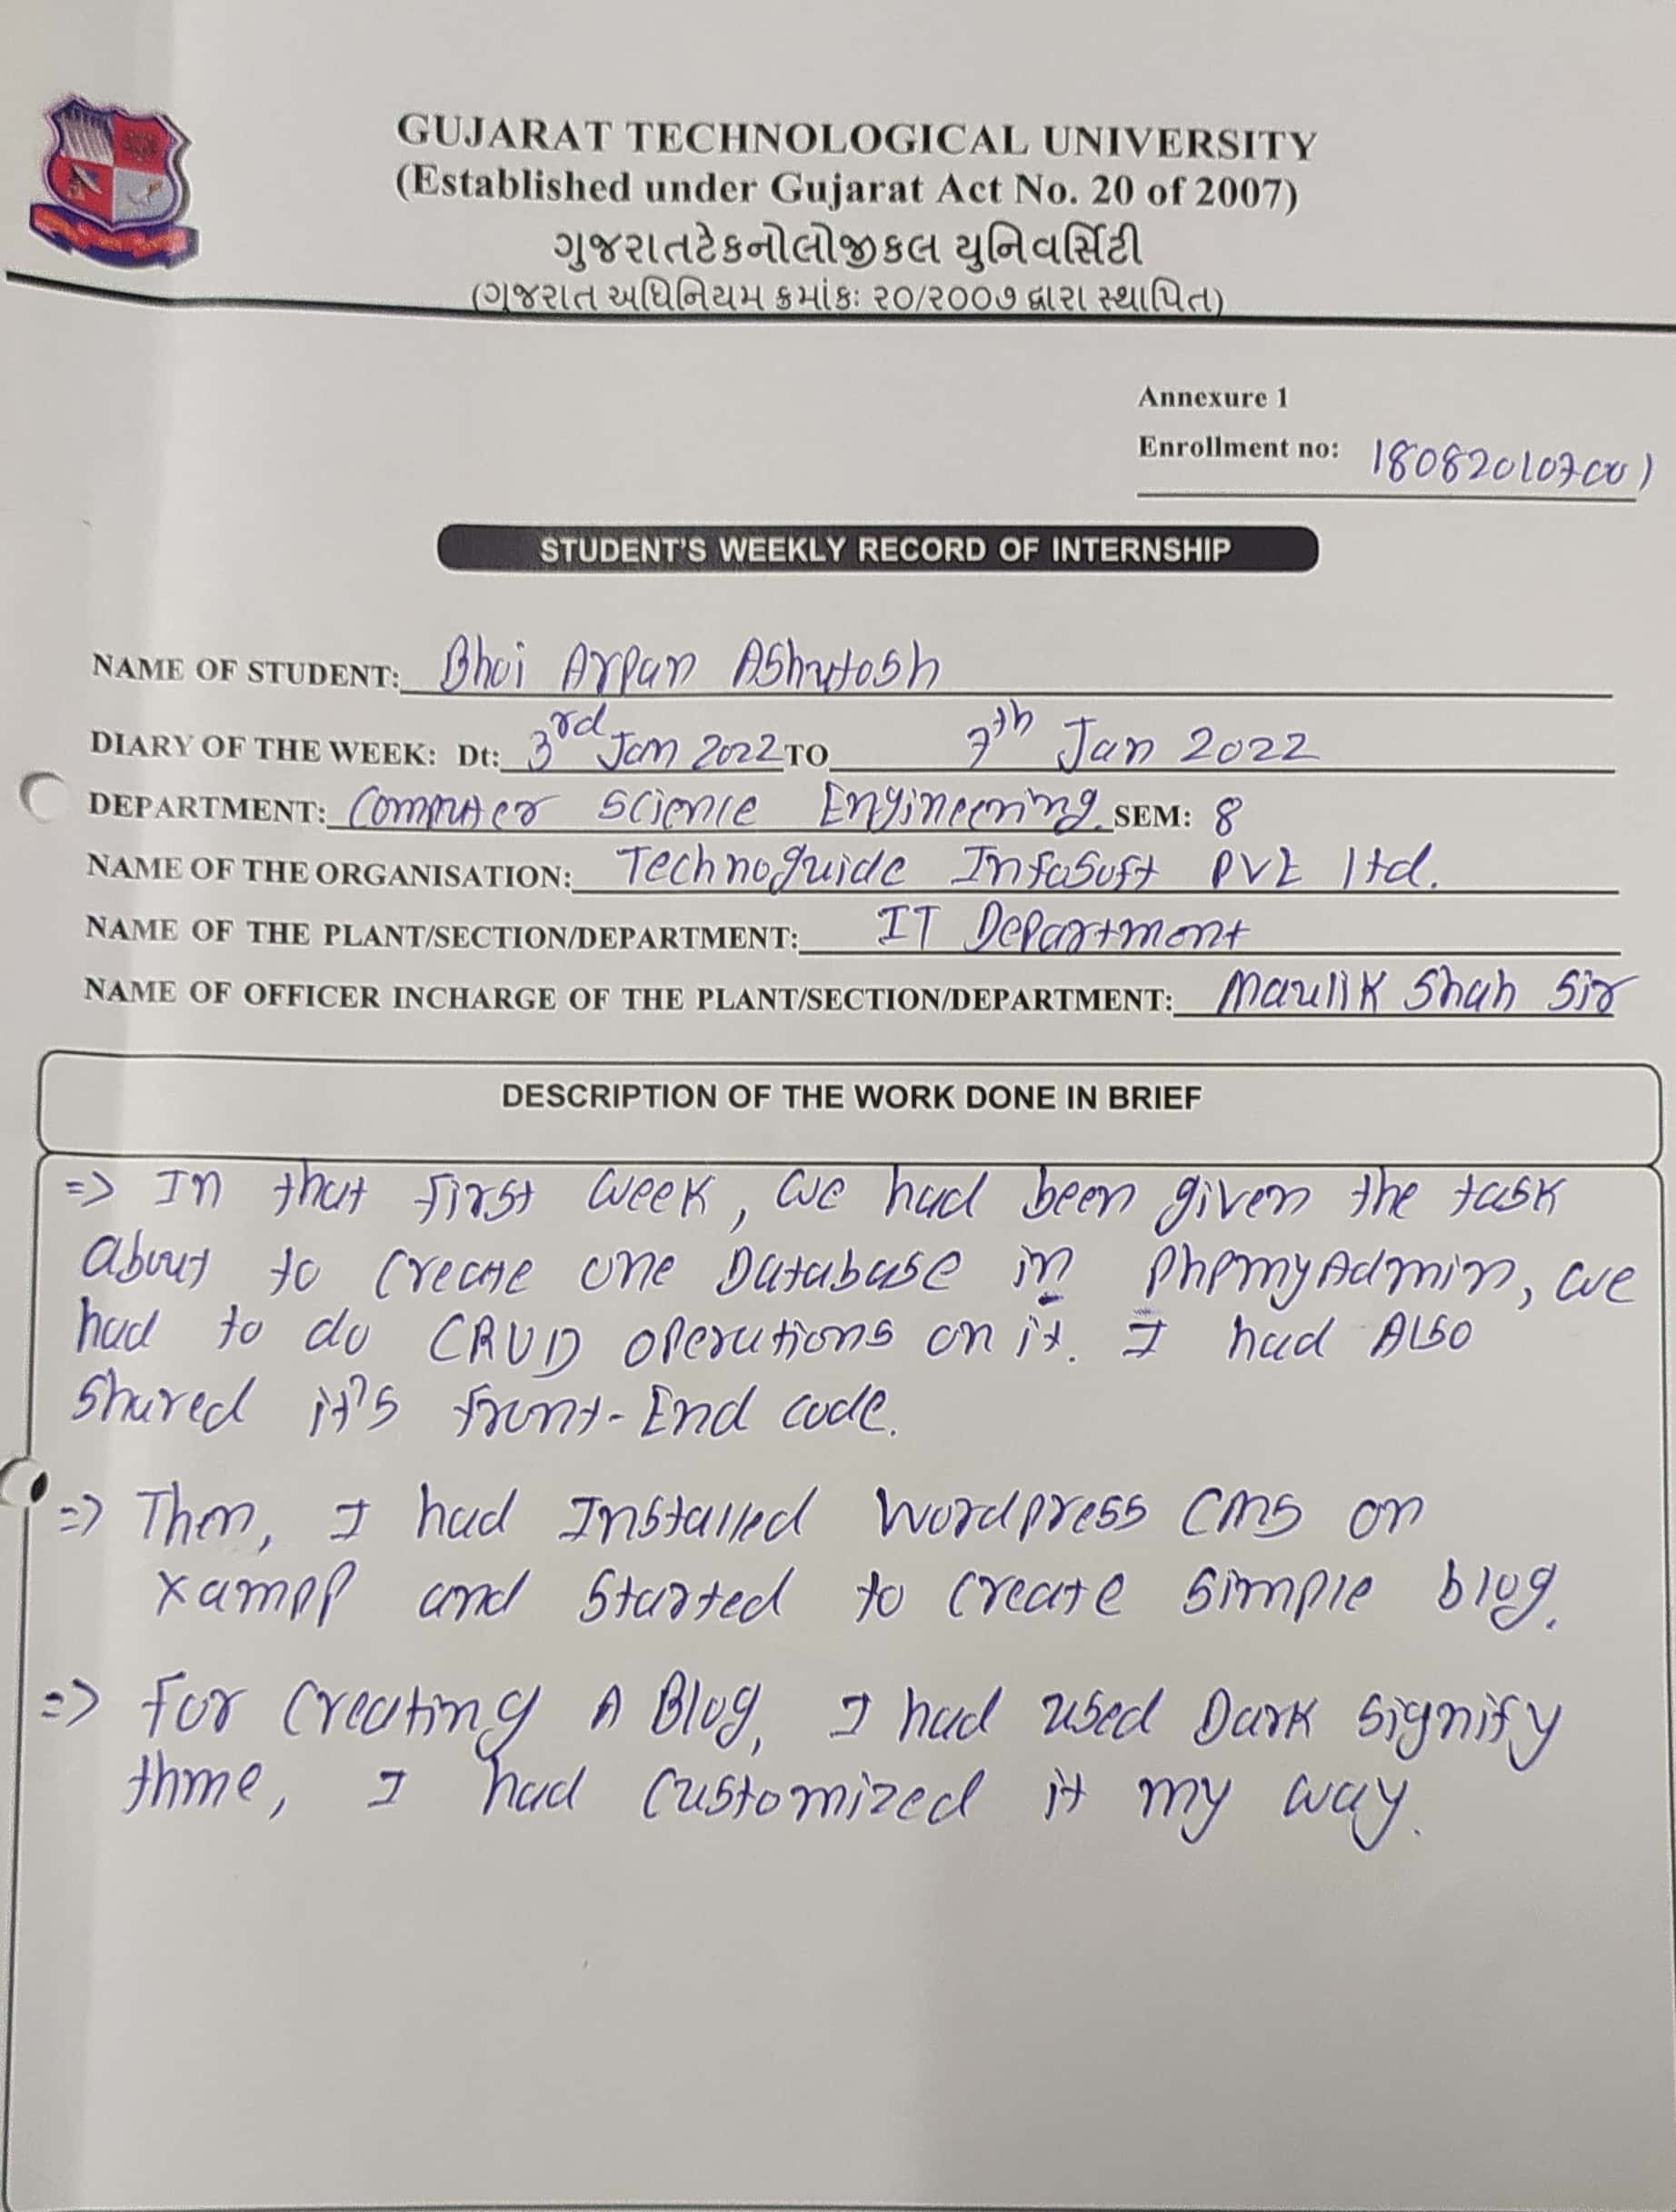 GUJARAT TECHNOLOGICAL UNIVERSITY
(Established under Gujarat Act No. 20 of 2007)
ગુજરાતટેકનોલોજીકલ યુનિવર્સિટી
(ગુજરાત અધિનિયમ ક્રમાંકઃ ૨૦/૨૦૦૭ દ્વારા સ્થાપિત)
Annexure 1
Enrollment no: 180820107001
STUDENT'S WEEKLY RECORD OF INTERNSHIP
NAME OF STUDENT: Bhoi Arpan Ashutosh
DIARY OF THE WEEK: Dt: 3rd Jan 2022 TO 7th Jan 2022
DEPARTMENT: Computer Science Engineering. SEM: 8
NAME OF THE ORGANISATION: Technoguide InfoSoft Pvt ltd.
NAME OF THE PLANT/SECTION/DEPARTMENT: IT Department
NAME OF OFFICER INCHARGE OF THE PLANT/SECTION/DEPARTMENT: Maulik Shah Sir
DESCRIPTION OF THE WORK DONE IN BRIEF
=> In that first week, we had been given the task
about to create one Database in PhpmyAdmin, we
had to do CRUD operations on it. I had Also
shared it's front-End code.
=> Then, I had Installed Wordpress CMS on
xampp and Started to create simple blog.
=> for Creating A Blog, I had used Dark Signify
thme, I had customized it my way.